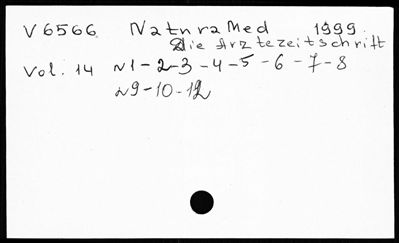 V 6566 NaturaMed 1999
Die Arztezeitschrift
Vol. 14 N1-2-3-4-5-6-7-8
N9-10-12